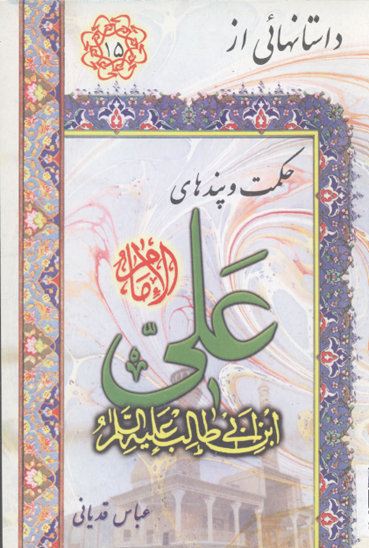 داستانهائی از
۱۵
حکمت و پندهای
الإمام
عَلیّ
ابن ابی طالب علیه السلام
عباس قدیانی